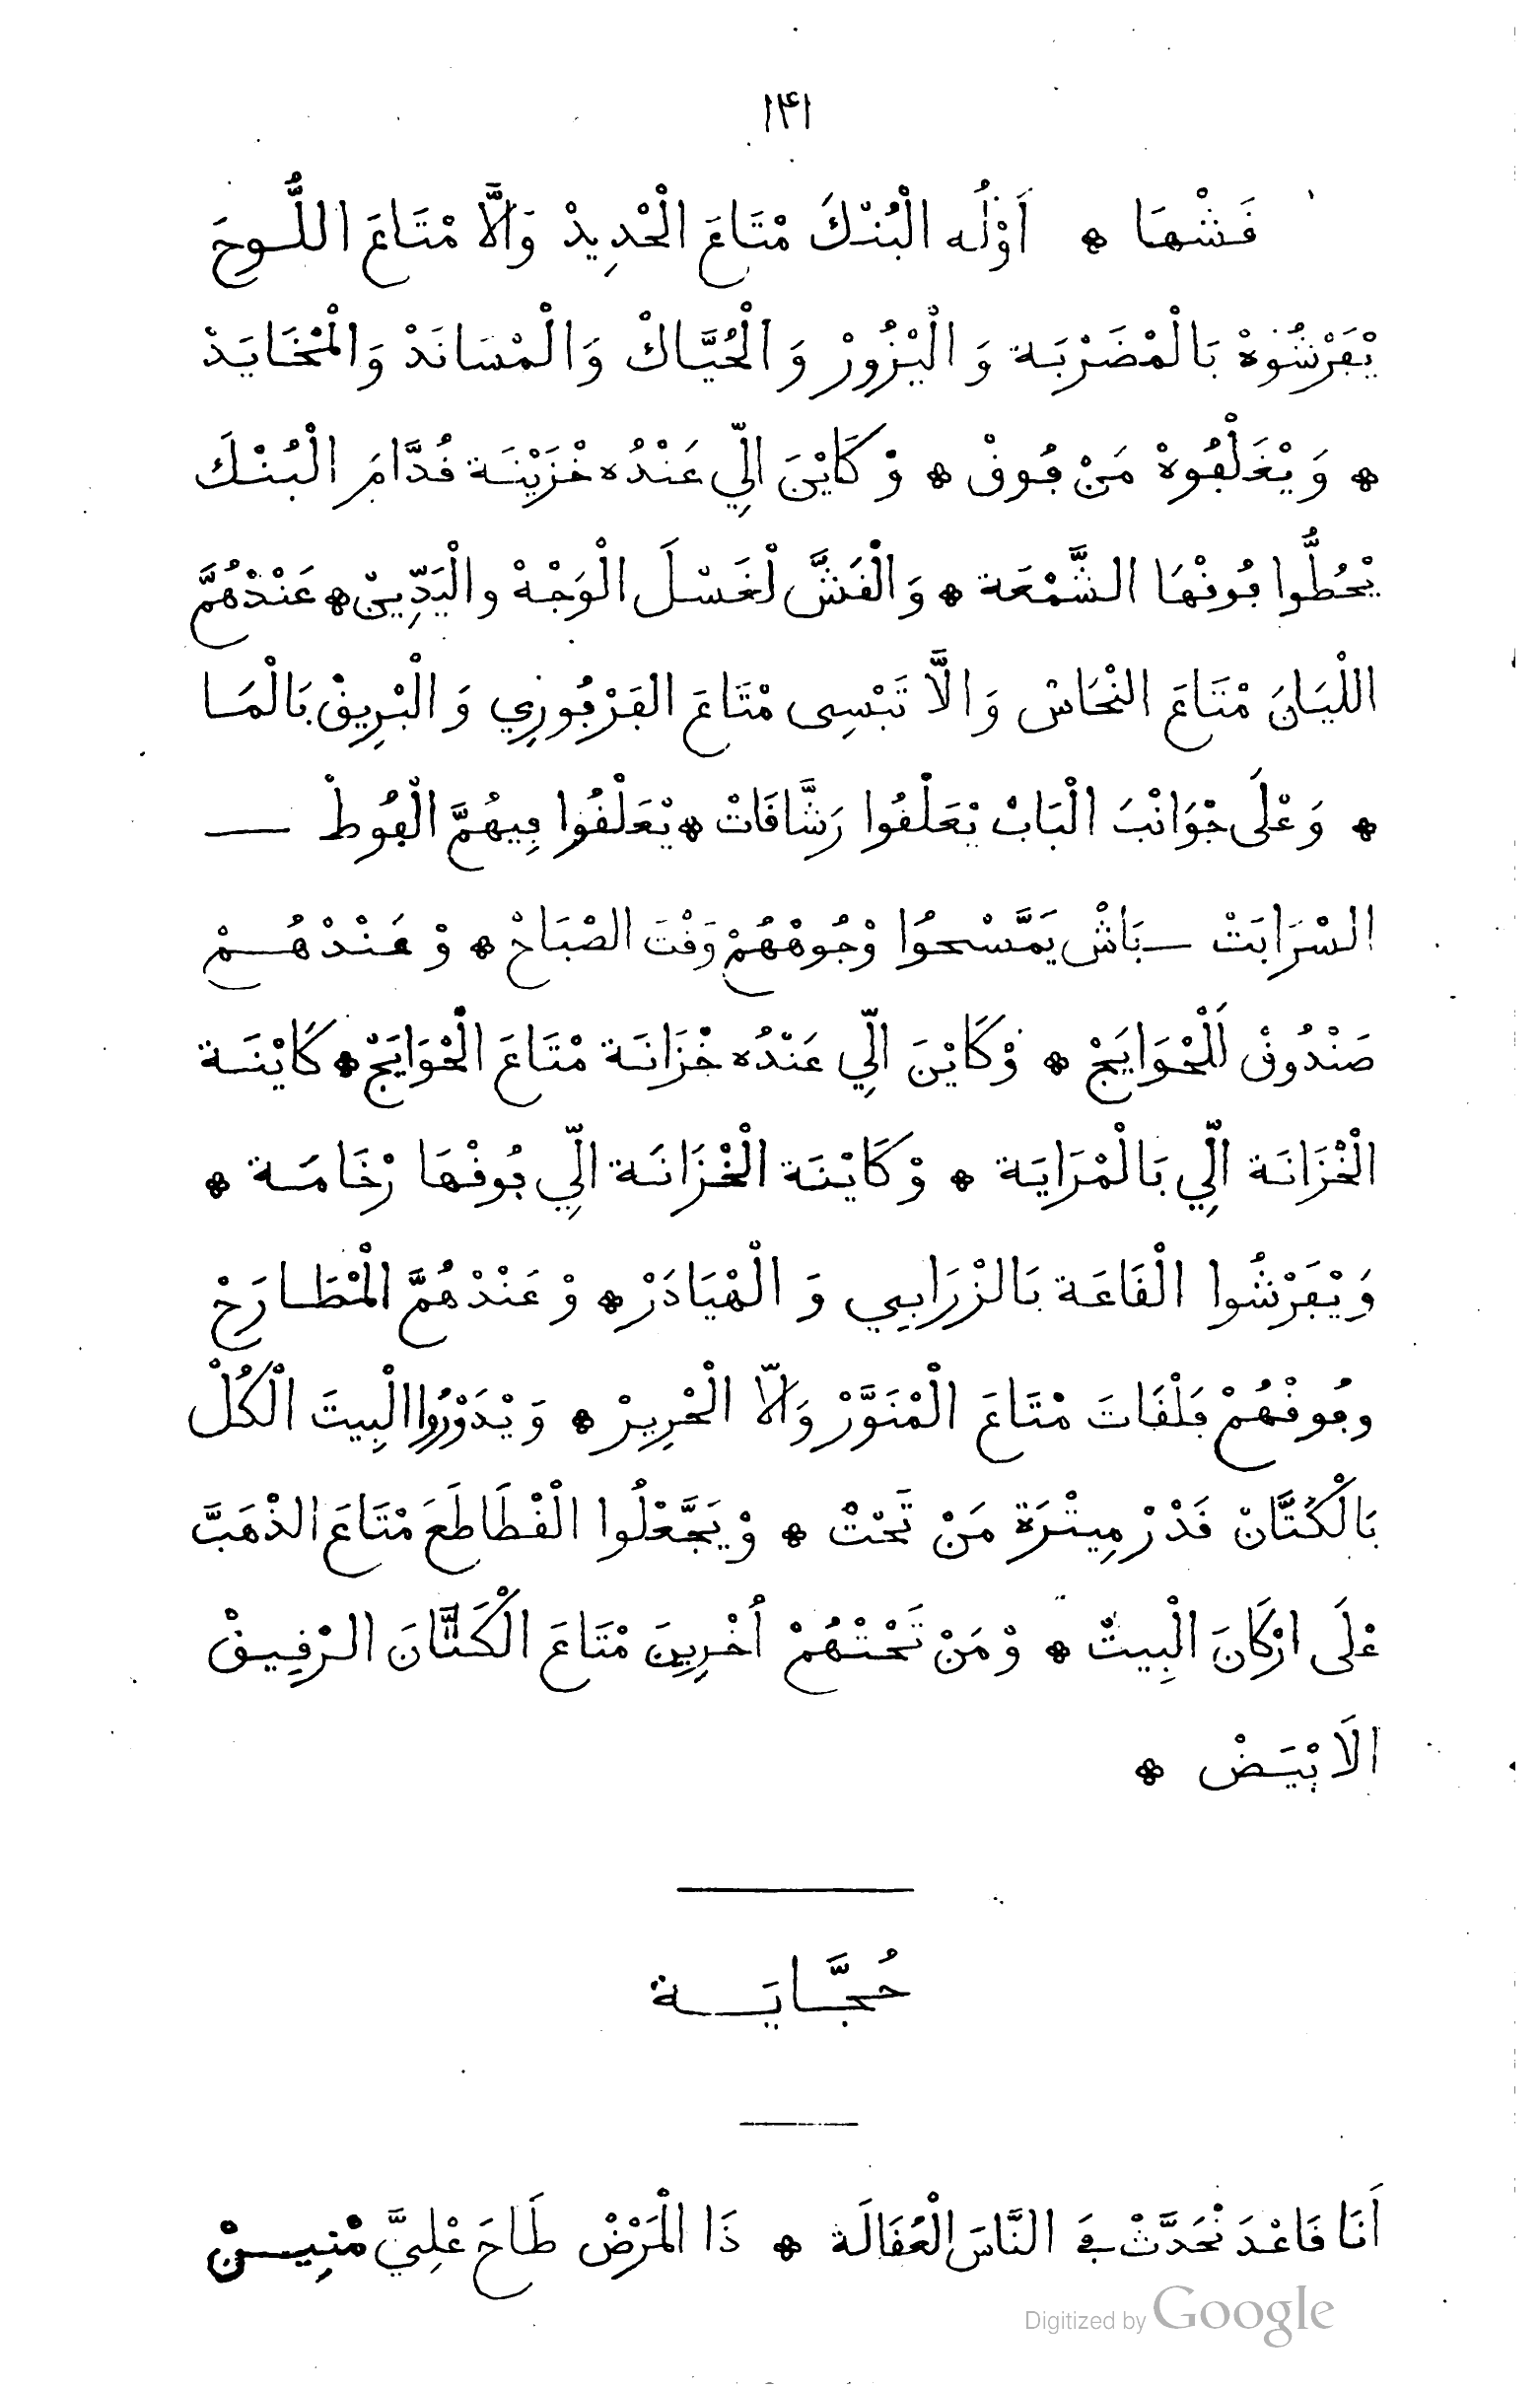 ١۴١
قَشْهَا * أَوْلُه الْبُنْكَ مْتَاعَ الْحْدِيدْ وَالَّا مْتَاعَ اللُّوحَ
يْفَرْشُوهْ بَالْمْضَرْبَة وَ الْيْزُورْ وَ الْحُيَّاكْ وَ الْمْسَانَدْ وَ الْمْخَايَدْ
* وَ يْغَلْفُوهْ مَنْ فُوقْ * وْ كَايْنَ الِّي عَنْدُه خْزَيْنَة قُدَّامَ الْبُنْكَ
يْحُطُّوا فُوقْهَا الشَّمْعَة * وَ الْقَشَّ لْغَسْلَ الْوَجْهْ والْيَدِّينْ * عَنْدْهُمَّ
اللْيَانَ مْتَاعَ النْحَاسْ وَ الَّا تَبْسِي مْتَاعَ الفَرْفُورِي وَ الْبْرِيقْ بَالْمَا
* وَ عْلَى جْوَانْبَ الْبَابْ يْعَلْقُوا رَشَّاقَاتْ * يْعَلْقُوا فِيهُمَّ الْفُوطْ —
السْرَابَتْ — بَاشْ يَمَّسْحُوا وْجُوهْهُمْ وَقْتَ الصْبَاحْ * وْ عَنْدْهُمْ
صَنْدُوقْ لَلْحْوَايَجْ * وْ كَايْنَ الِّي عَنْدُه خْزَانَة مْتَاعَ الْحْوَايَجْ * كَايْنَة
الْخْزَانَة الِّي بَالْمْرَايَة * وْ كَايْنَة الْخْزَانَة الِّي فُوقْهَا رْخَامَة *
وَ يْفَرْشُوا الْقَاعَة بَالزْرَابِي وَ الْهْيَادَرْ * وْ عَنْدْهُمَّ الْمْطَارَحْ
وفُوقْهُمْ فَلْقَاتَ مْتَاعَ الْمْنَوَّرْ وَالَّا الْحْرِيرْ * وَ يْدَوْرُوا الْبِيتَ الْكُلْ
بَالْكُتَّانْ قَدْرْ مِيتْرَة مَنْ تَحْتْ * وْ يَجَّعْلُوا الْقْطَاطَعَ مْتَاعَ الذْهَبَّ
عْلَى ارْكَانَ الْبِيتْ * وْ مَنْ تَحْتْهُمْ أُخْرِينَ مْتَاعَ الْكَتَّانَ الرْقِيقْ
الَابْيَضْ *
حُجَّايَة
أَنَا قَاعْدَ نْحَدَّثْ فِي النَّاسَ الْعُقَالَة * ذَا الْمَرْضْ طَاحَ عْلِيَّ مْنِينْ